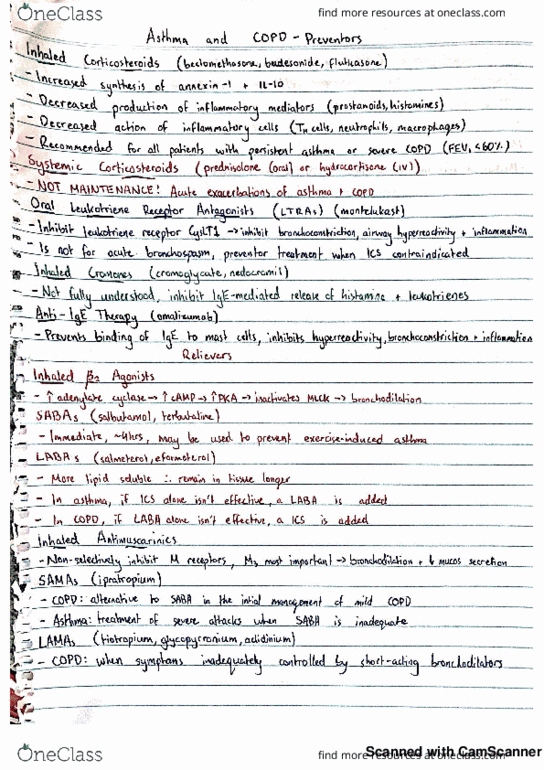 OneClass
find more resources at oneclass.com
Asthma and COPD - Preventors
Inhaled Corticosteroids (beclomethasone, budesonide, fluticasone)
- Increased synthesis of annexin-1 + IL-10
- Decreased production of inflammatory mediators (prostanoids, histamines)
- Decreased action of inflammatory cells (TH cells, neutrophils, macrophages)
- Recommended for all patients with persistent asthma or severe COPD (FEV, <60%)
Systemic Corticosteroids (prednisolone (oral) or hydrocortisone (IV))
- NOT MAINTENANCE! Acute exacerbations of asthma + COPD
Oral Leukotriene Receptor Antagonists (LTRAs) (montelukast)
- Inhibit leukotriene receptor CysLT1 → inhibit bronchoconstriction, airway hyperreactivity + inflammation
- Is not for acute bronchospasm, preventor treatment when ICS contraindicated
Inhaled Cromones (cromoglycate, nedocromil)
- Not fully understood, inhibit IgE-mediated release of histamine + leukotrienes
Anti-IgE Therapy (omalizumab)
- Prevents binding of IgE to mast cells, inhibits hyperreactivity, bronchoconstriction + inflammation
Relievers
Inhaled β2 Agonists
- ↑ adenylate cyclase → ↑ cAMP → ↑ PKA → inactivates MLCK → bronchodilation
SABAs (salbutamol, terbutaline)
- Immediate, ~4hrs, may be used to prevent exercise-induced asthma
LABAs (salmeterol, eformoterol)
- More lipid soluble ∴ remain in tissue longer
- In asthma, if ICS alone isn't effective, a LABA is added
- In COPD, if LABA alone isn't effective, a ICS is added
Inhaled Antimuscarinics
- Non-selectively inhibit M receptors, M3 most important → bronchodilation + ↓ mucos secretion
SAMAs (ipratropium)
- COPD: alternative to SABA in the intial management of mild COPD
- Asthma: treatment of severe attacks when SABA is inadequate
LAMAs (tiotropium, glycopyrronium, aclidinium)
- COPD: when symptoms inadequately controlled by short-acting bronchodilators
OneClass
find more resources at oneclass.com
Scanned with CamScanner